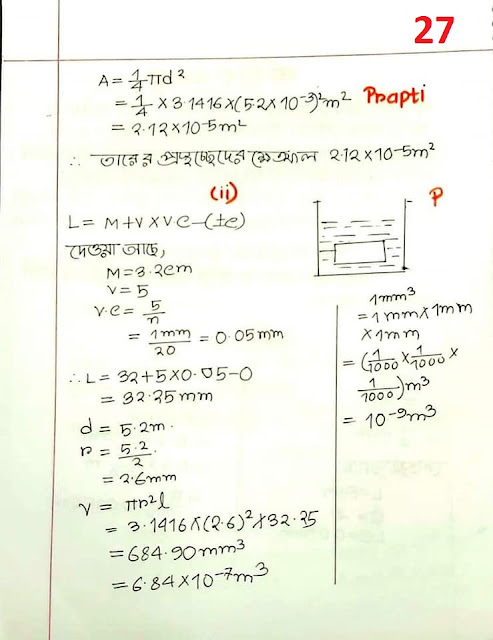 27
A = 1/4 πd²
= 1/4 × 3·1416 × (5·2 × 10⁻³)² m²
Prapti
= 2·12 × 10⁻⁵ m²
∴ তারের প্রস্থচ্ছেদের ক্ষেত্রফল 2·12 × 10⁻⁵ m²
(ii)
L = M + V × V·C – (±e)
দেওয়া আছে,
M = 3·2cm
V = 5
V·C = 5/n
= 1mm/20 = 0·05mm
∴ L = 32 + 5 × 0·05 – 0
= 32·25 mm
d = 5·2m.
r = 5·2/2.
= 2·6mm
V = πr²l
= 3·1416 × (2·6)² × 32·25
= 684·90 mm³
= 6·84 × 10⁻⁷ m³
P
1mm³
= 1mm × 1mm
× 1mm
= (1/1000 × 1/1000 ×
1/1000) m³
= 10⁻⁹ m³